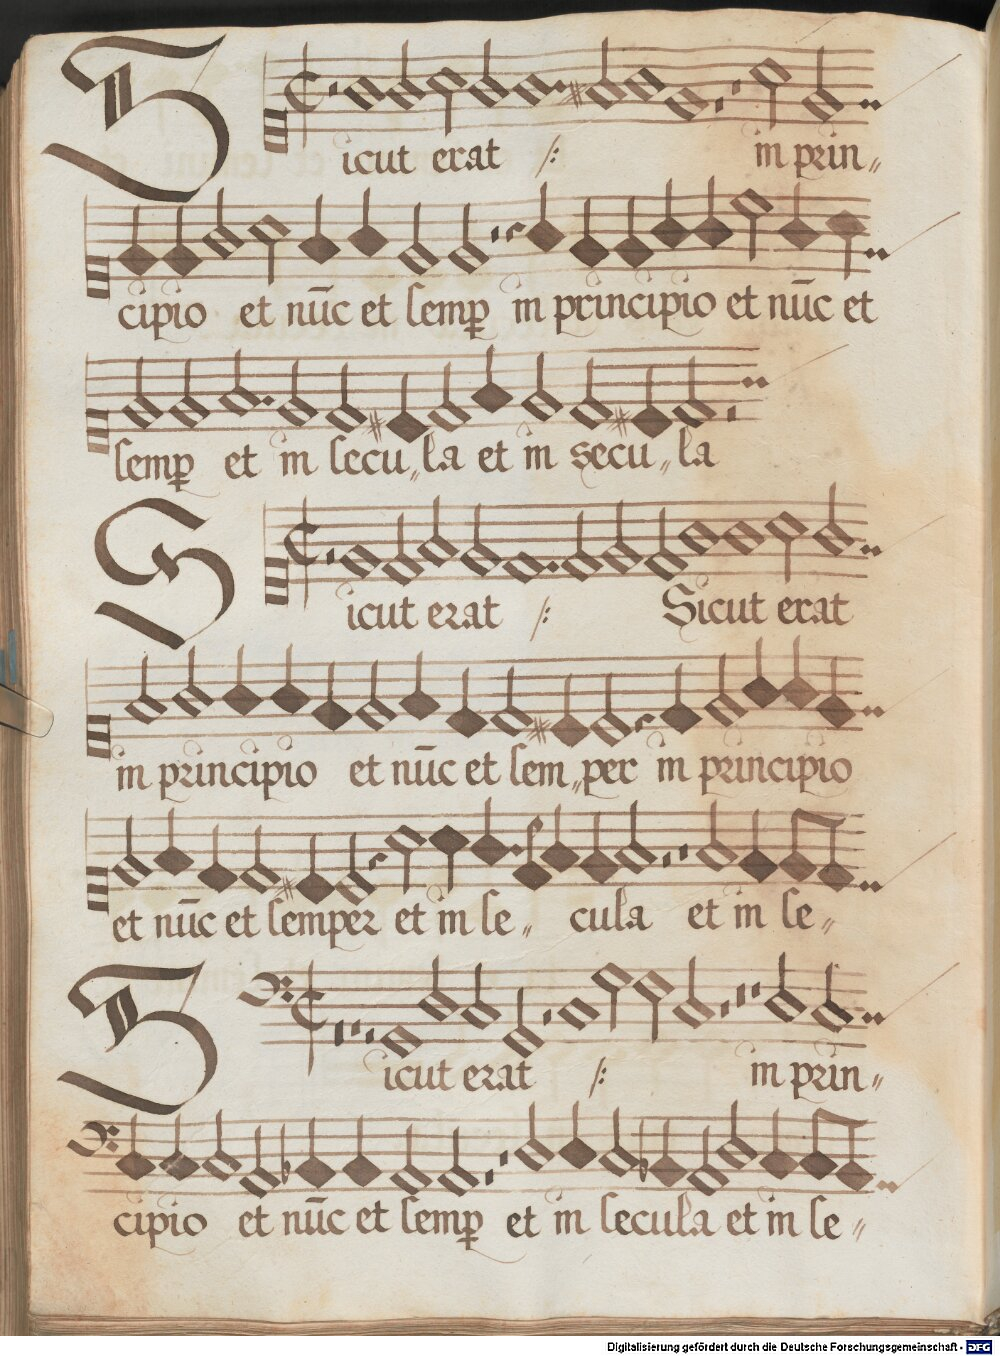 Sicut erat /: in prin„
cipio et nūc et semp in principio et nūc et
semp et in secu„la et in secu„la
Sicut erat /: Sicut erat
in principio et nūc et sem„per in principio
et nūc et semper et in se„ cula et in se„
Sicut erat /: in prin„
cipio et nūc et semp et in secula et in se„
Digitalisierung gefördert durch die Deutsche Forschungsgemeinschaft - DFG